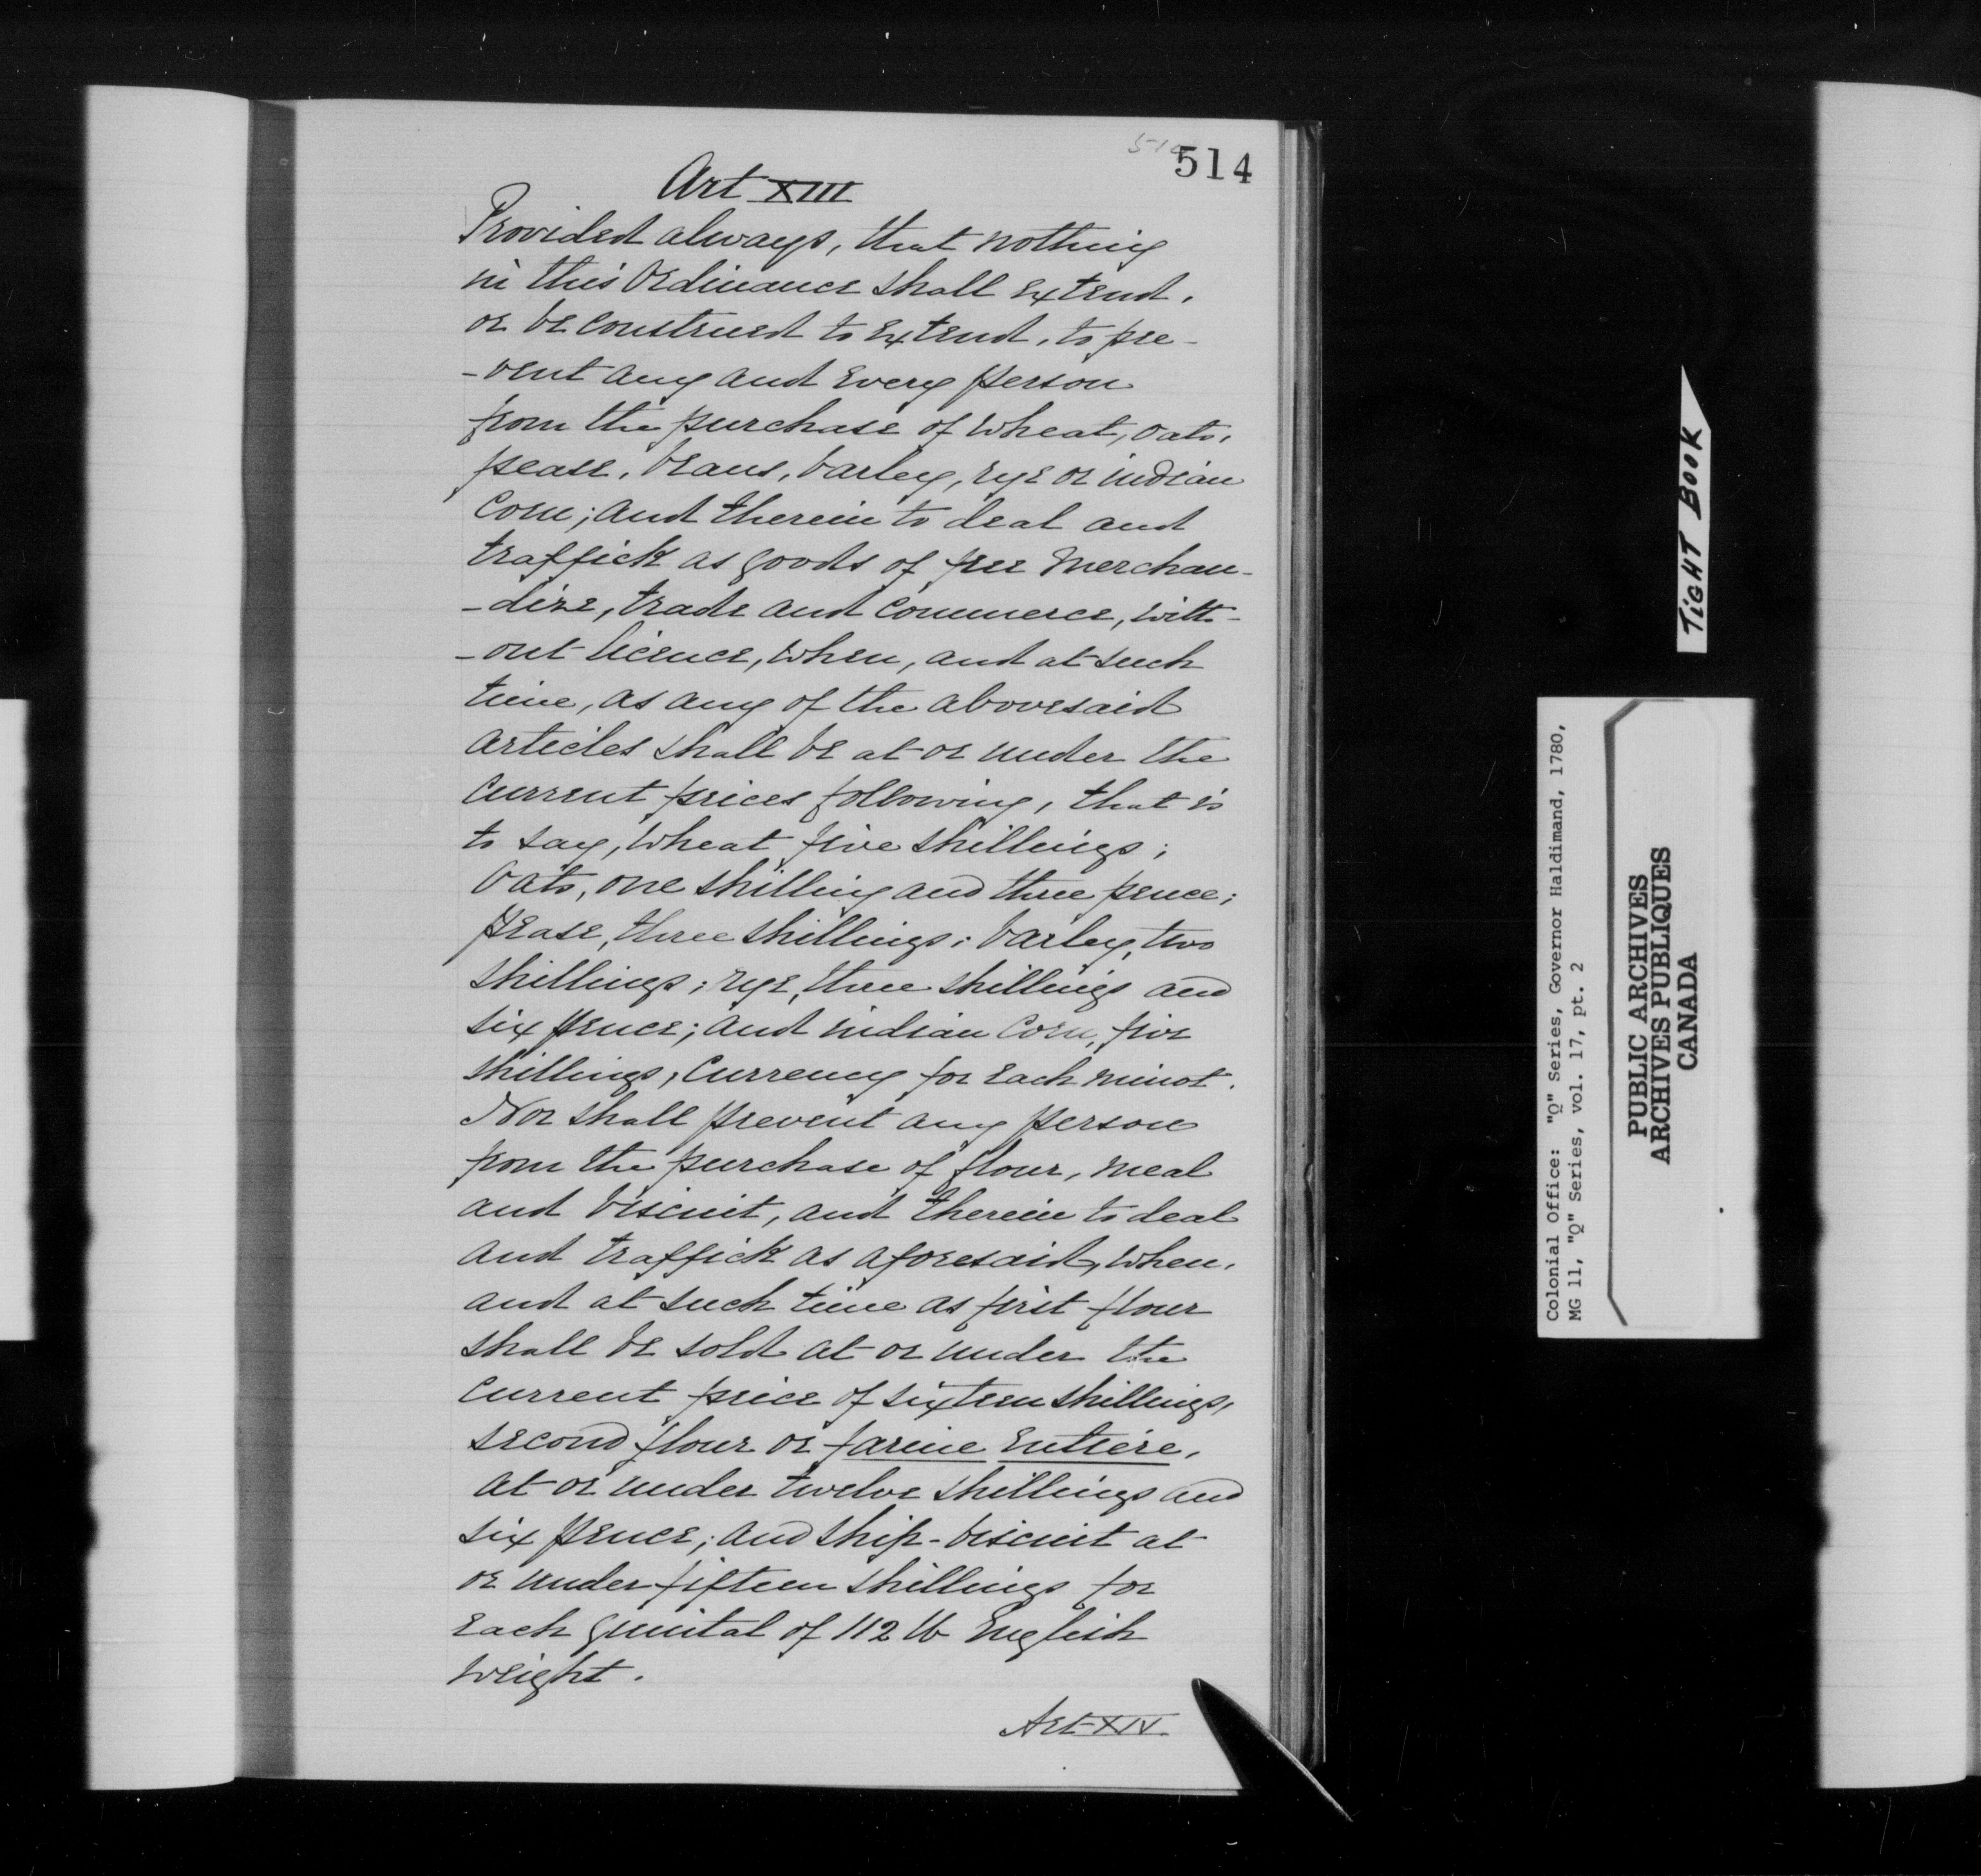 514
Art XIII
Provided always, that nothing
in this Ordinance shall extend,
or be construed to extend, to pre-
-vent any and every person
from the purchase of wheat, oats,
pease, beans, barley, rye or indian
Corn; and therein to deal and
traffick as goods of free Merchan-
-dize, trade and Commerce, with-
-out licence, when, and at such
time, as any of the abovesaid
articles shall be at or under the
Current prices following, that is
to say, wheat five shillings;
Oats, one shilling and three pence;
pease, three shillings; barley, two
shillings; rye, three shillings and
six pence; and indian Corn, five
shillings, Currency for each minot.
Nor shall prevent any person
from the purchase of flour, meal
and biscuit, and therein to deal
and traffick as aforesaid, when,
and at such time as first flour
shall be sold at or under the
Current price of sixteen shillings,
second flour or farine entière,
at or under twelve shillings and
six pence; and ship-biscuit at
or under fifteen shillings for
each quintal of 112 lb English
weight.
Art XIV.
TIGHT BOOK
Colonial Office: "Q" Series, Governor Haldimand, 1780,
MG 11, "Q" Series, vol. 17, pt. 2
PUBLIC ARCHIVES
ARCHIVES PUBLIQUES
CANADA